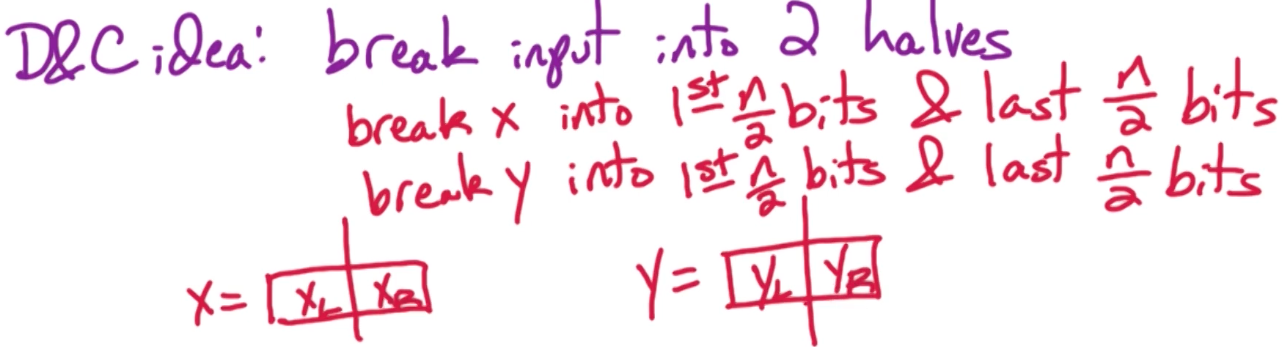 D&C idea: break input into 2 halves
break x into 1st n/2 bits & last n/2 bits
break y into 1st n/2 bits & last n/2 bits
x = x_L x_R y = y_L y_R